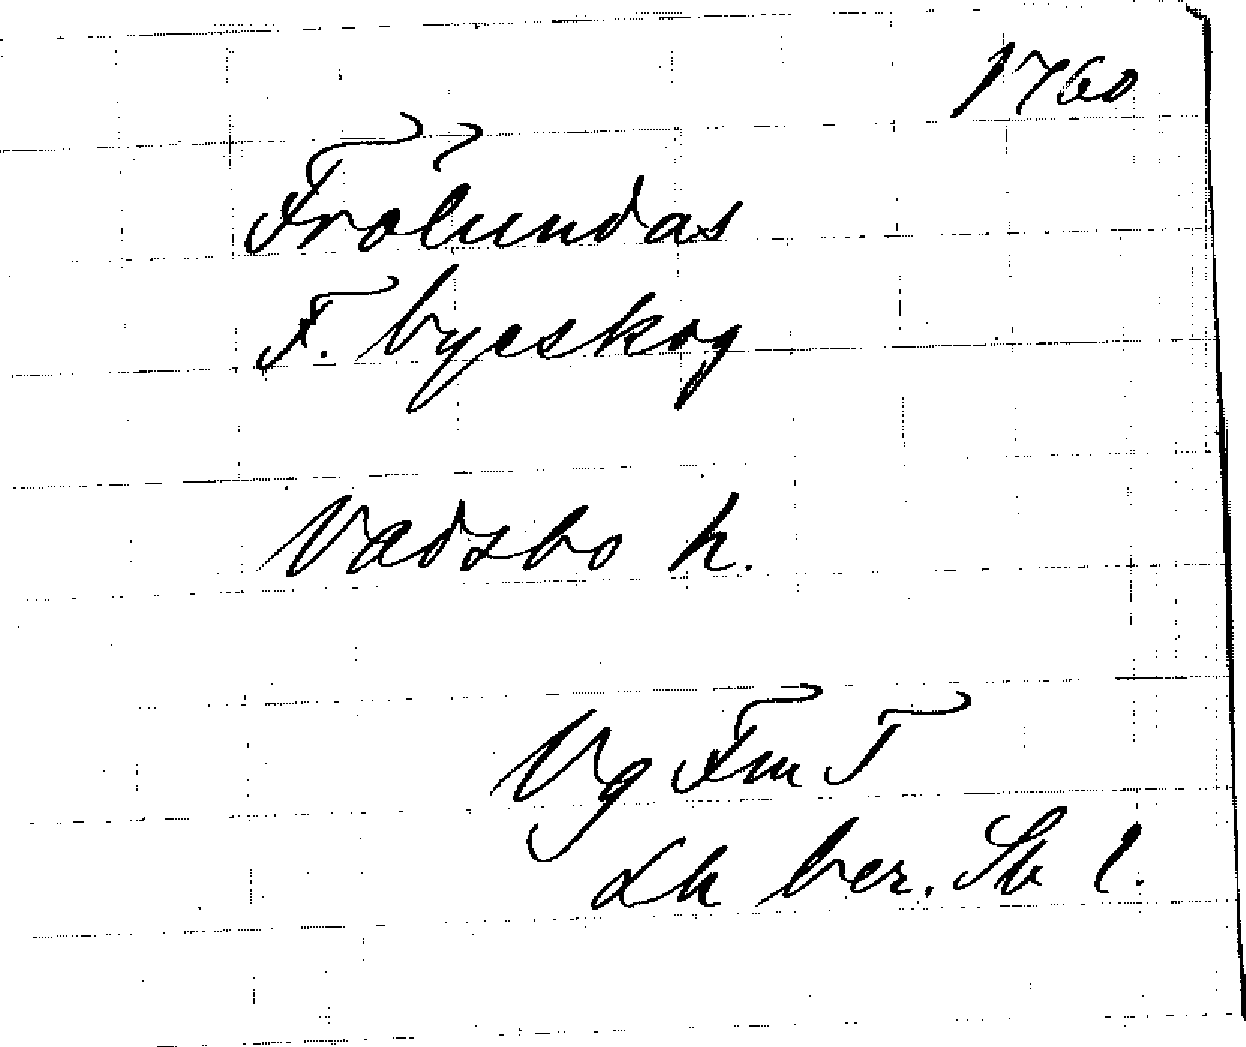 1760
Frölundas
F. byeskog
Vadsbo h.
Vg Fm T
Lh ber. Sk l.